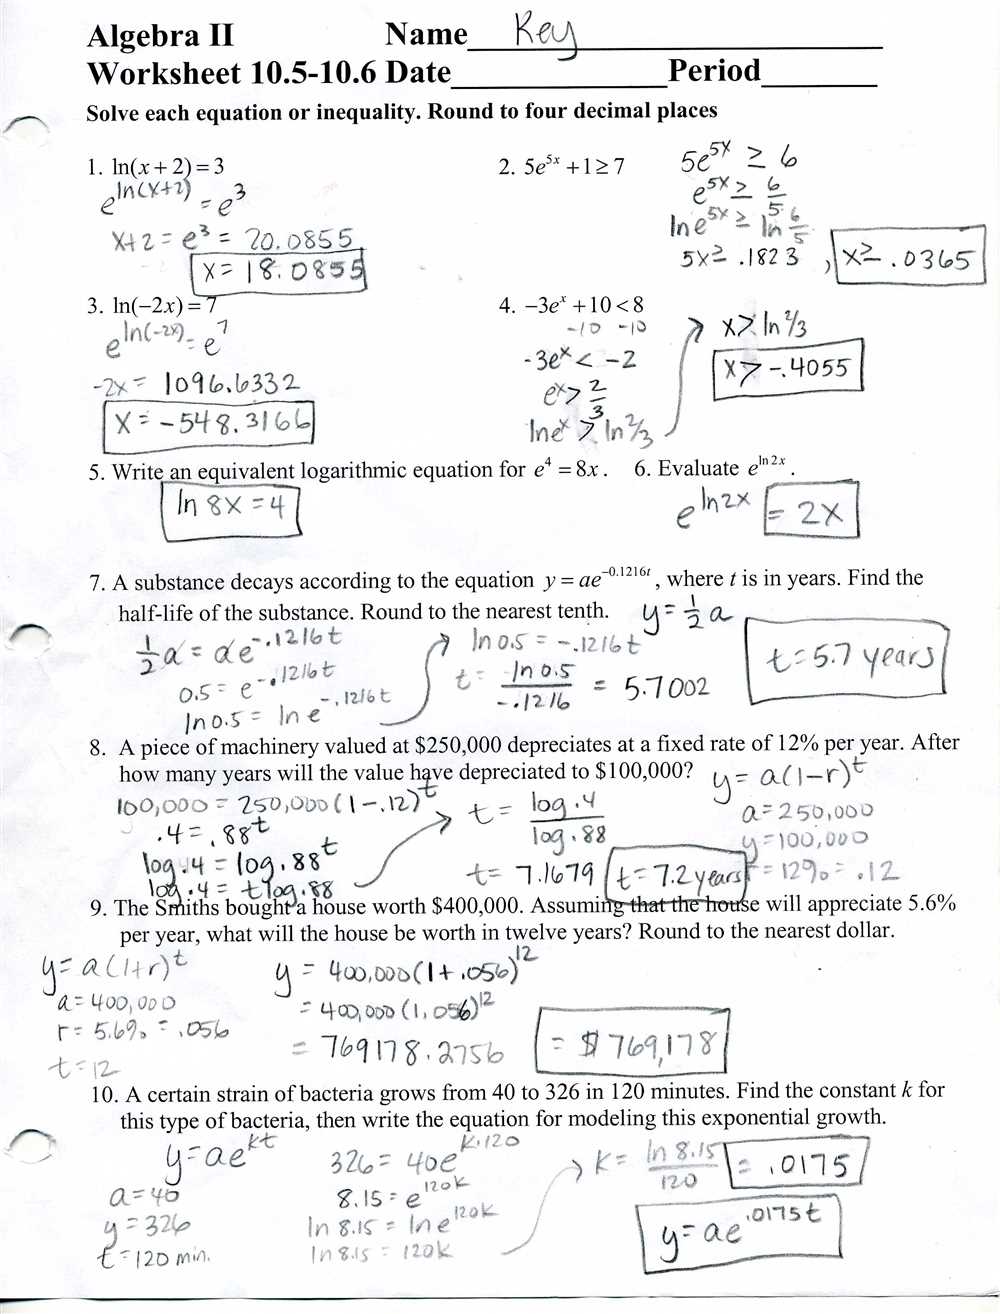 Algebra II Name Key
Worksheet 10.5-10.6 Date Period
Solve each equation or inequality. Round to four decimal places
1. ln(x + 2) = 3
e^ln(x+2) = e^3
x+2 = e^3 = 20.0855
x = 18.0855
2. 5e^5x + 1 ≥ 7
5e^5x ≥ 6
e^5x ≥ 6/5
ln e^5x ≥ ln 6/5
5x ≥ .1823, x ≥ .0365
3. ln(−2x) = 7
e^ln(-2x) = e^7
-2x = 1096.6332
x = -548.3166
4. −3e^x + 10 < 8
-10 -10
-3e^x < -2
e^x > 2/3
ln e^x > ln 2/3
x > ln 2/3
x > -.4055
5. Write an equivalent logarithmic equation for e^4 = 8x.
ln 8x = 4
6. Evaluate e^ln 2x.
e^ln2x = 2x
7. A substance decays according to the equation y = ae^−0.1216t, where t is in years. Find the
half-life of the substance. Round to the nearest tenth. y = 1/2 a
1/2 a = ae^-.1216t
0.5 = e^-.1216t
ln 0.5 = ln e^-.1216t
ln 0.5 = -.1216t
t = ln 0.5/-.1216 = 5.7002
t = 5.7 years
8. A piece of machinery valued at $250,000 depreciates at a fixed rate of 12% per year. After
how many years will the value have depreciated to $100,000?
y = a(1-r)^t
a = 250,000
y = 100,000
r = 12% = .12
100,000 = 250,000(1-.12)^t
.4 = .88^t
log .4 = log .88^t
log .4 = t log .88
t = log .4/log .88
t = 7.1679 t = 7.2 years
9. The Smiths bought a house worth $400,000. Assuming that the house will appreciate 5.6%
per year, what will the house be worth in twelve years? Round to the nearest dollar.
y = a(1+r)^t
a = 400,000
r = 5.6% = .056
t = 12
y = 400,000(1+.056)^12
= 400,000(1.056)^12
= 769178.2756
= $769,178
10. A certain strain of bacteria grows from 40 to 326 in 120 minutes. Find the constant k for
this type of bacteria, then write the equation for modeling this exponential growth.
y = ae^kt
a = 40
y = 326
t = 120 min.
326 = 40e^k·120
8.15 = e^120k
ln 8.15 = ln e^120k
ln 8.15 = 120k
k = ln 8.15/120 = .0175
y = ae^.0175t